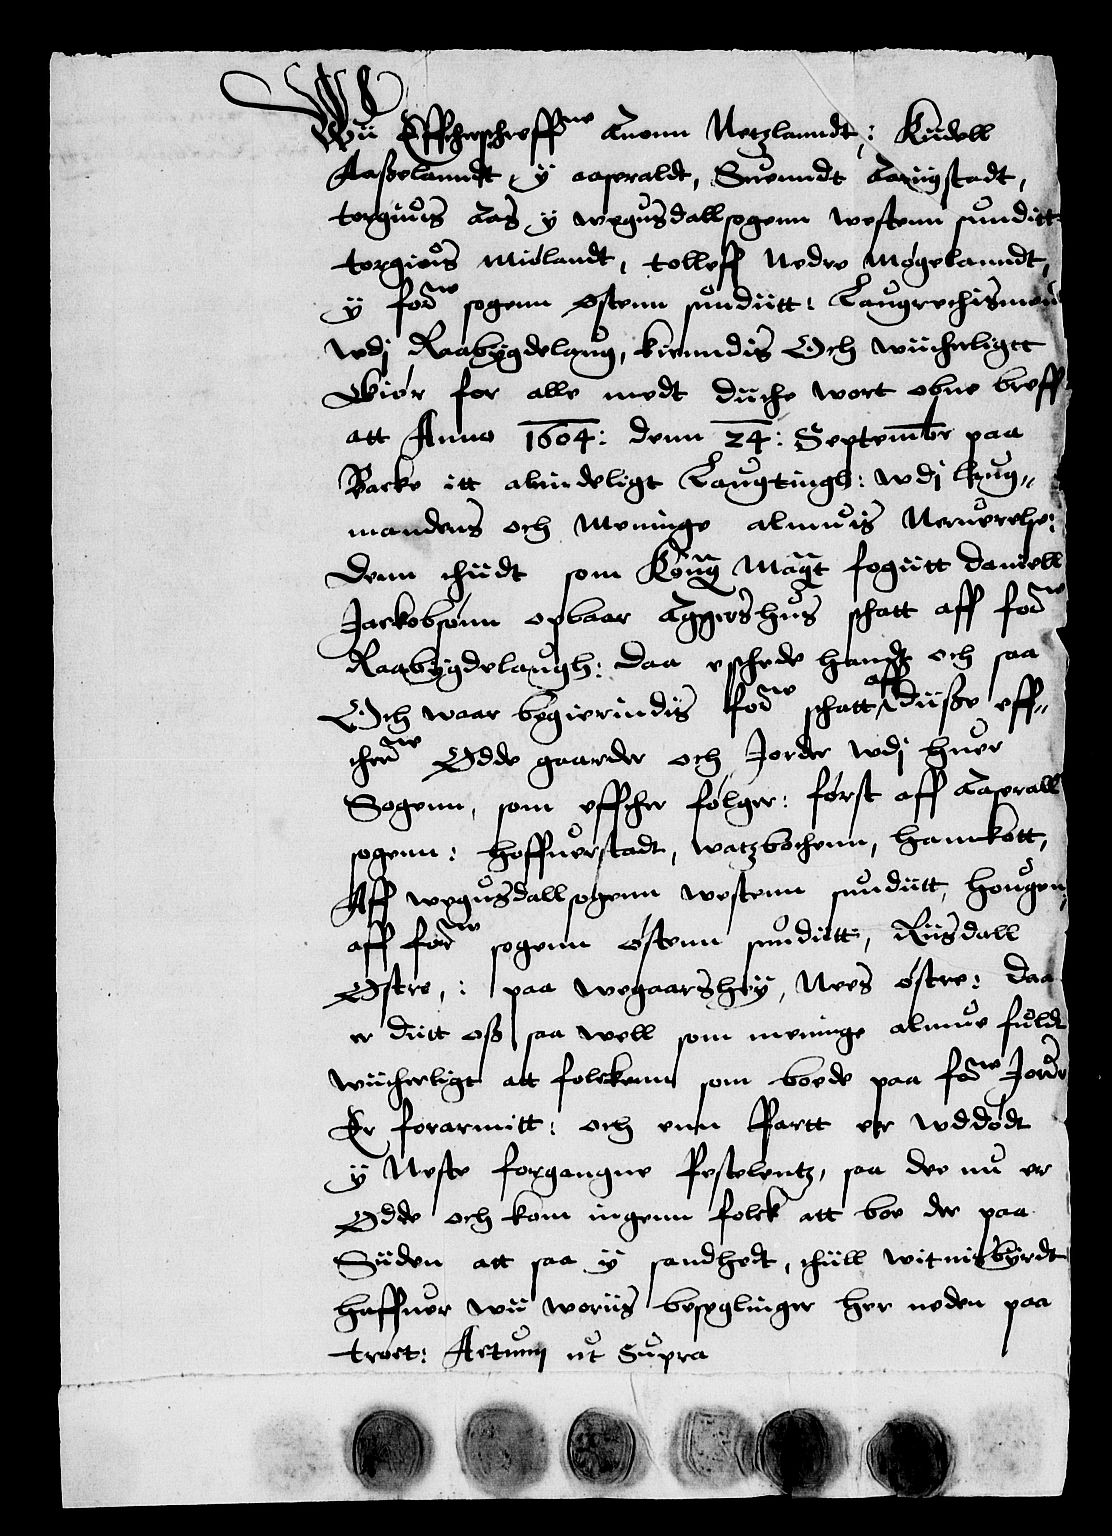 Wii Effcherschreffne Anonn Netzlanndt: Kiidell
Aaßelanndt, ÿ aaseraldt, Suenndt Aarigstadt,
torgiuis Aas ÿ wegusdallsogenn westenn sunditt
torgieus Miólandt, tolleff Nedre Mógelanndt,
ÿ fordne sogenn østenn sundiitt: Laugrethismen
wdj Raabÿgdelaug, kienndis Och wiitherligtt
Giór for alle medt diithe wort obne breff
att Anno 1604: denn 24: Septembr paa
Backe itt almindeligt Laugtingh: wdj Laug„
mandens och Meninge almuis Neruerelse:
Denn thiidt som Konng Maÿt fogiitt daniell
Jackobsónn opbaar Aggershus schatt aff fordne
Raabÿgdelaugh: Daa eschede handt och saa
Och waar begierindis fordne schatt aff diiße eff„
therne Ødde gaarder och Jorder wdj huer
Sogenn, som effther fólger: fórst aff Aaserall
sogenn: hoffuerstadt, watzbothenn, hannkott,
Aff wegusdallsogenn westenn sundiitt, hougen,
aff fordne sogenn óstenn sundiitt, Riisdall
Østre,: paa wegaarsheÿ, Nees óstre: Daa
er diitt oß saa well som meninge almue fuldt
wiitherligt att folckenn som boede paa fordne Jorder
Er forarmitt: och enn Partt er wddódt
ÿ Neste forgangne Pestelentz, saa dee nu er
Ødde och kom ingenn folck att boe der paa
Siiden att saa ÿ sandhedt, thiill witnisbÿrdt
haffuer wii woriis beseglinger her neden paa
trøct: Actum ut Supra